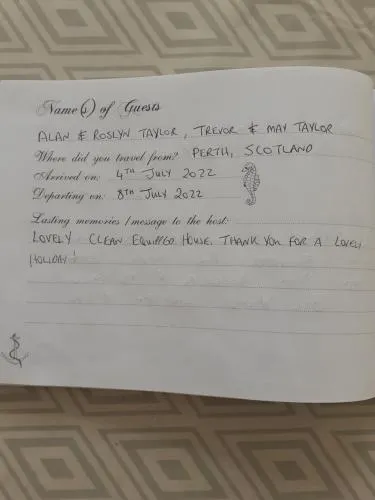 Name(s) of Guests
ALAN & ROSLYN TAYLOR, TREVOR & MAY TAYLOR
Where did you travel from? PERTH, SCOTLAND
Arrived on: 4TH JULY 2022
Departing on: 8TH JULY 2022
Lasting memories / message to the host:
LOVELY CLEAN EQUIPPED HOUSE. THANK YOU FOR A LOVELY
HOLIDAY!